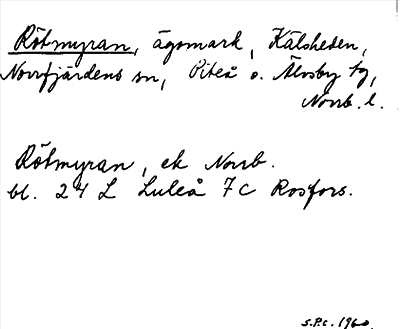 Rötmyran, ägomark, Kälsheden,
Norrfjärdens sn, Piteå o. Älvsby tg,
Norrb. l.
Rötmyran, ek Norrb.
bl. 24 L Luleå 7 C Rosfors.
S.P.C. 1960.